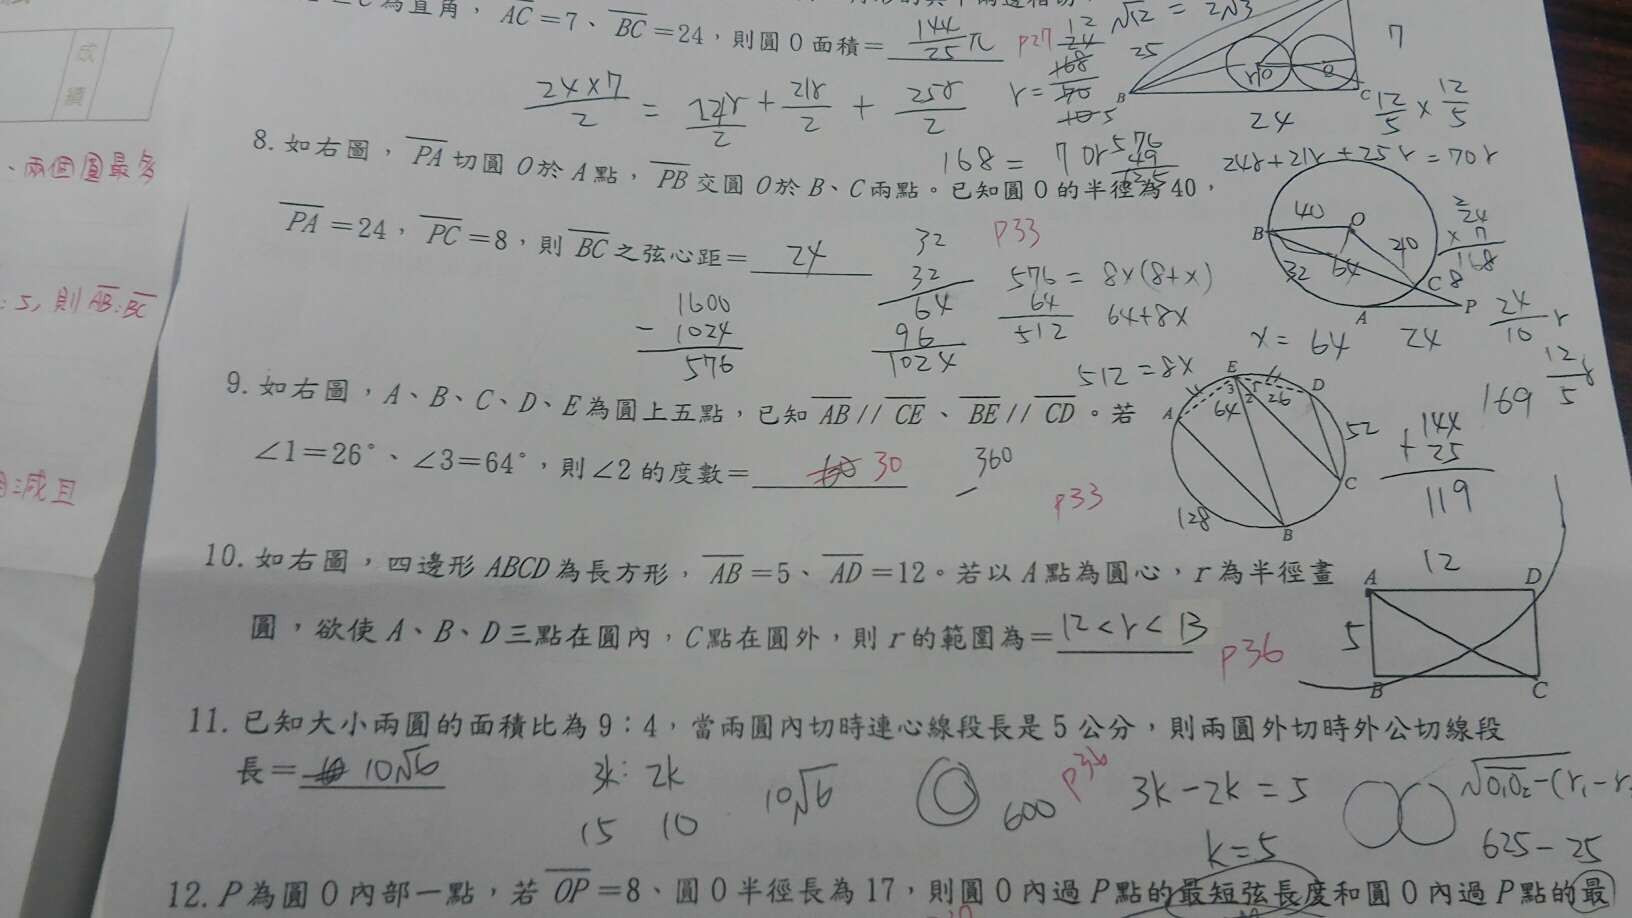 為直角，AC=7、BC=24，則圓O面積= 144/25 π p27
24×7/2 = 24r/2 + 21r/2 + 25r/2
168 = 70r
24r+21r+25r=70r
12/5 × 12/5
成
績
、兩個圓最多
8. 如右圖，PA切圓O於A點，PB交圓O於B、C兩點。已知圓O的半徑為40，
PA=24，PC=8，則BC之弦心距= 24 p33
1600
- 1024
576
32
32
64
96
1024
576 = 8x(8+x)
64
512
64+8x
512 = 8x
x = 64
B 40 O 40 32 64 C 8 A 24 P
24
× 7
168
24/10 r
12/5
: 5, 則AB:BC
9. 如右圖，A、B、C、D、E為圓上五點，已知AB//CE、BE//CD。若
∠1=26°、∠3=64°，則∠2的度數= 30
360
p33
A E D C B 64 26 52 128
169
144
+ 25
119
10. 如右圖，四邊形ABCD為長方形，AB=5、AD=12。若以A點為圓心，r為半徑畫
圓，欲使A、B、D三點在圓內，C點在圓外，則r的範圍為= 12<r<13 p36
A 12 D 5 B C
11. 已知大小兩圓的面積比為9：4，當兩圓內切時連心線段長是5公分，則兩圓外切時外公切線段
長= 10√6
3k: 2k
15 10
10√6
600
p36
3k-2k=5
k=5
625-25
12. P為圓O內部一點，若OP=8、圓O半徑長為17，則圓O內過P點的最短弦長度和圓O內過P點的最